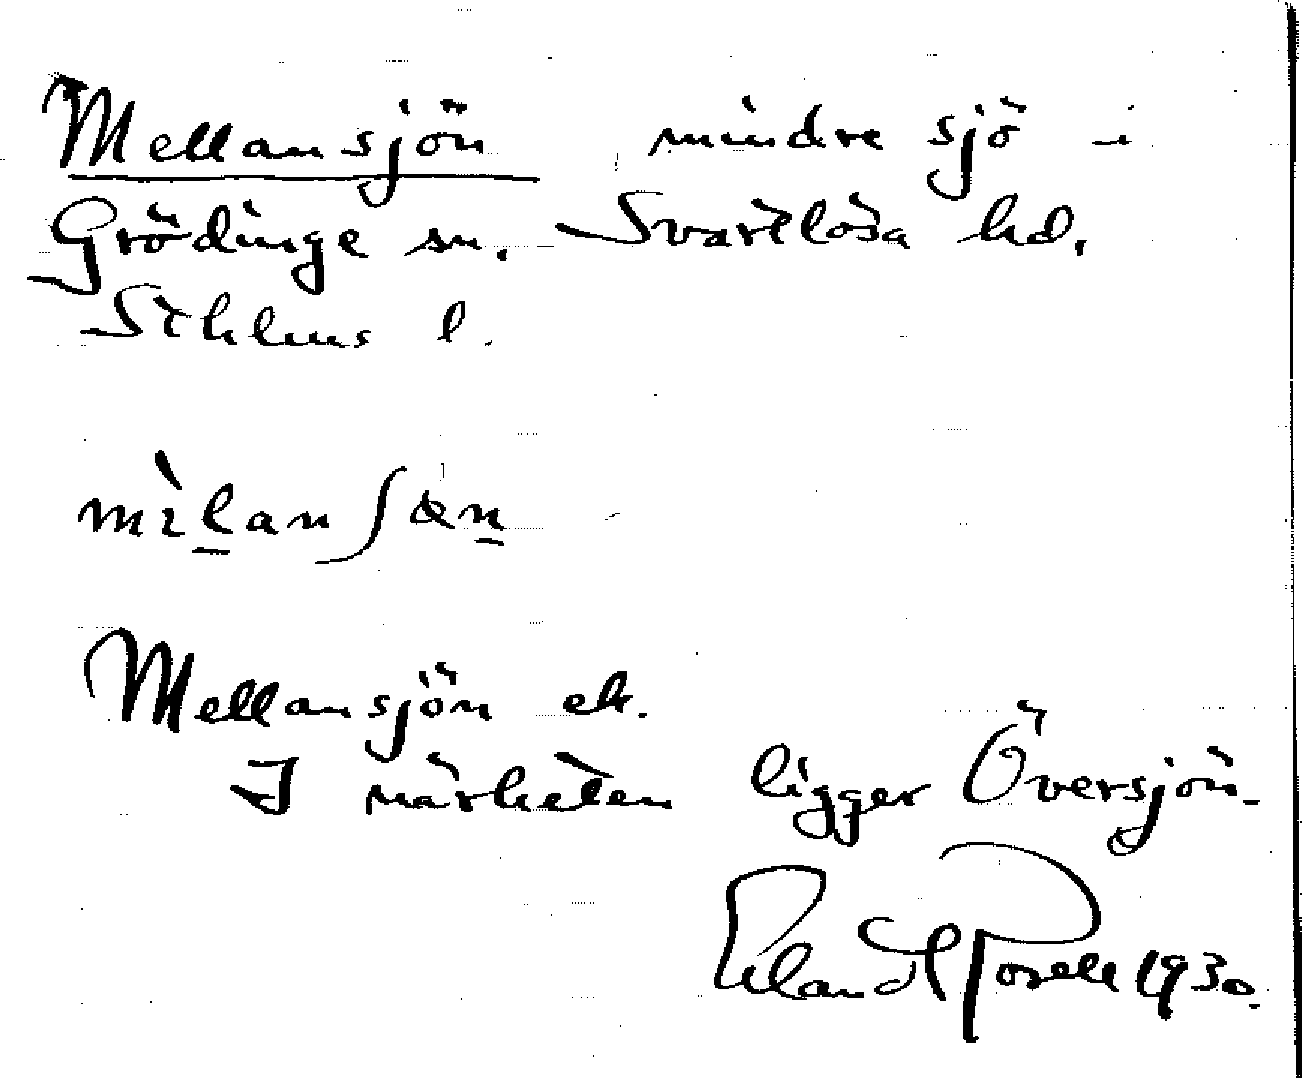 Mellansjön mindre sjö i
Grödinge sn. Svartlösa hd.
Sthlms l.
Mellansjön ek.
I närheten ligger Översjön.
Erland Rosell 1930.